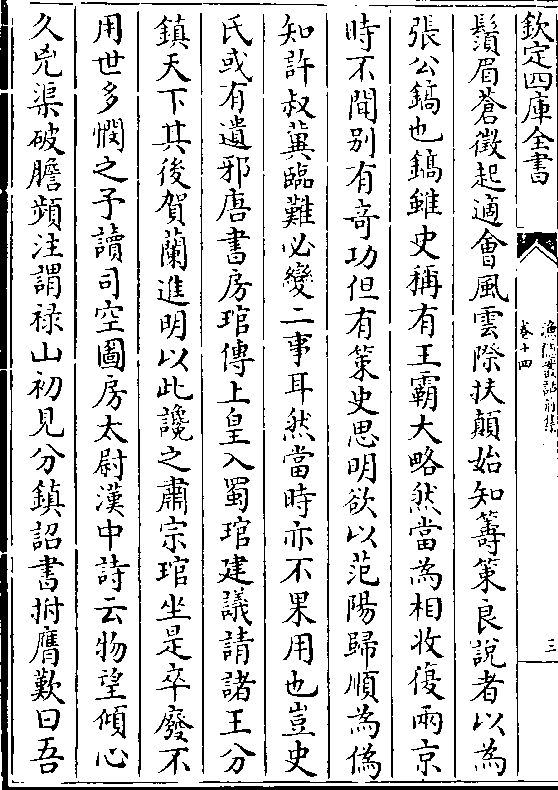 欽定四庫全書
漁隱叢話前集
卷十四
三
鬚眉蒼徴起適會風雲際扶顛始知籌策良說者以為
張公鎬也鎬雖史稱有王霸大略然當為相收復兩京
時不聞别有竒功但有策史思明欲以范陽歸順為偽
知許叔冀臨難必變二事耳然當時亦不果用也豈史
氏或有遺邪唐書房琯傳上皇入蜀琯建議請諸王分
鎮天下其後賀蘭進明以此讒之肅宗琯坐是卒廢不
用世多憫之予讀司空圖房太尉漢中詩云物望傾心
久兇渠破膽頻注謂禄山初見分鎮詔書拊膺歎曰吾